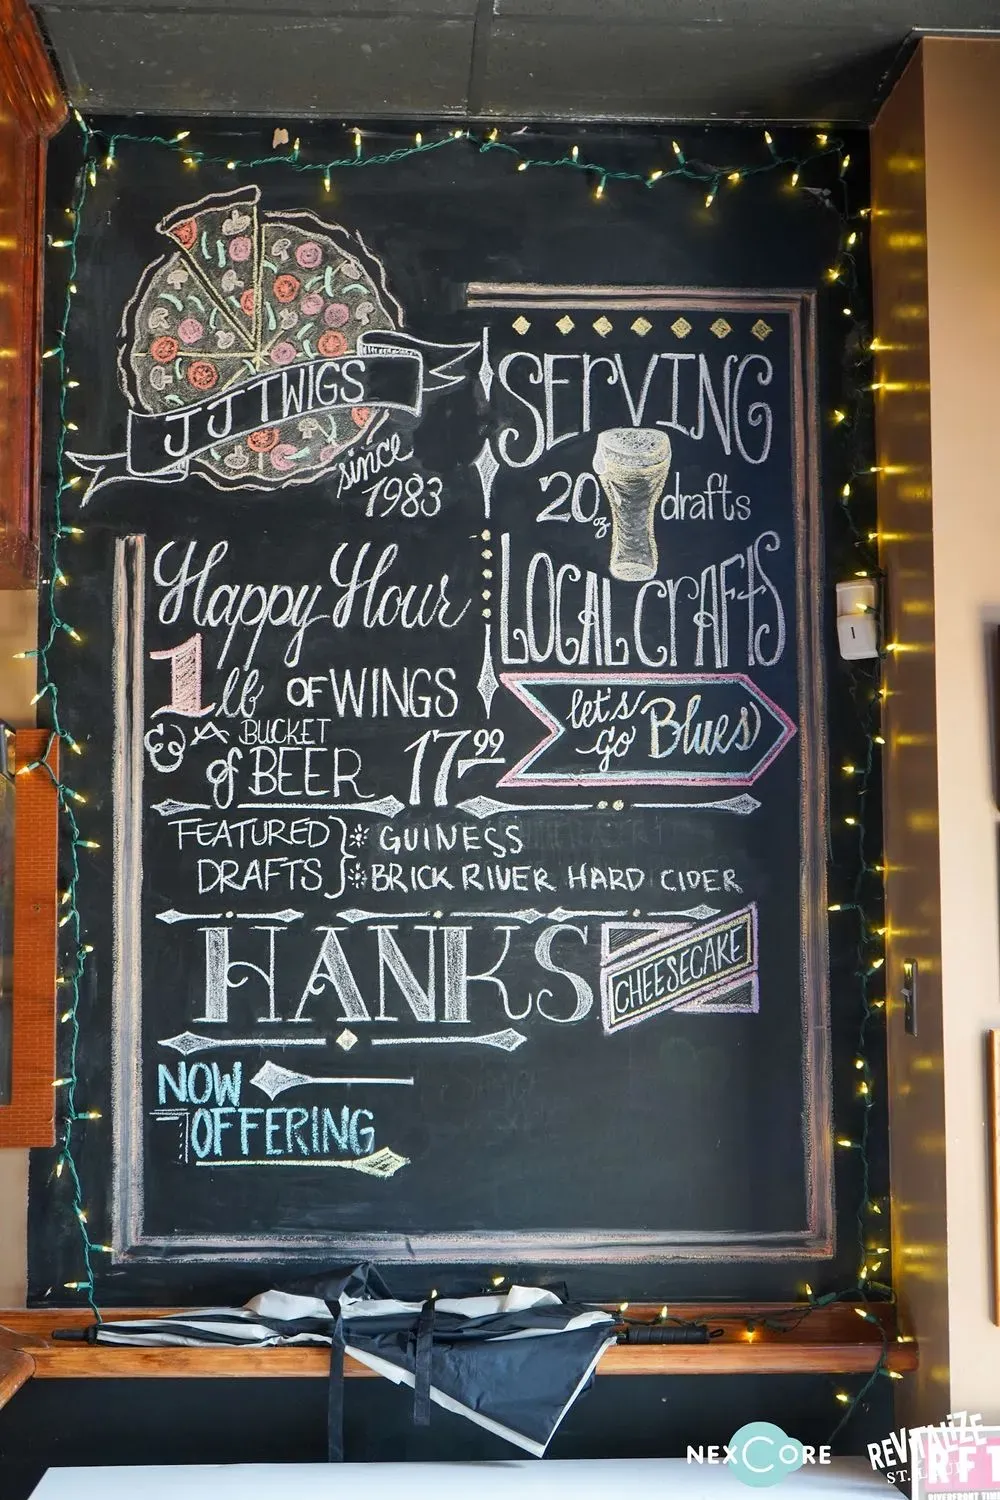 J J TWIGS
since
1983
SERVING
20 oz drafts
LOCAL CRAFTS
let's
go Blues
Happy Hour
1 lb OF WINGS
& A BUCKET
of BEER 17.99
FEATURED
DRAFTS
GUINESS
BRICK RIVER HARD CIDER
HANKS
CHEESECAKE
NOW
OFFERING
NEXCORE
REVITALIZE
ST.
RFT
RIVERFRONT